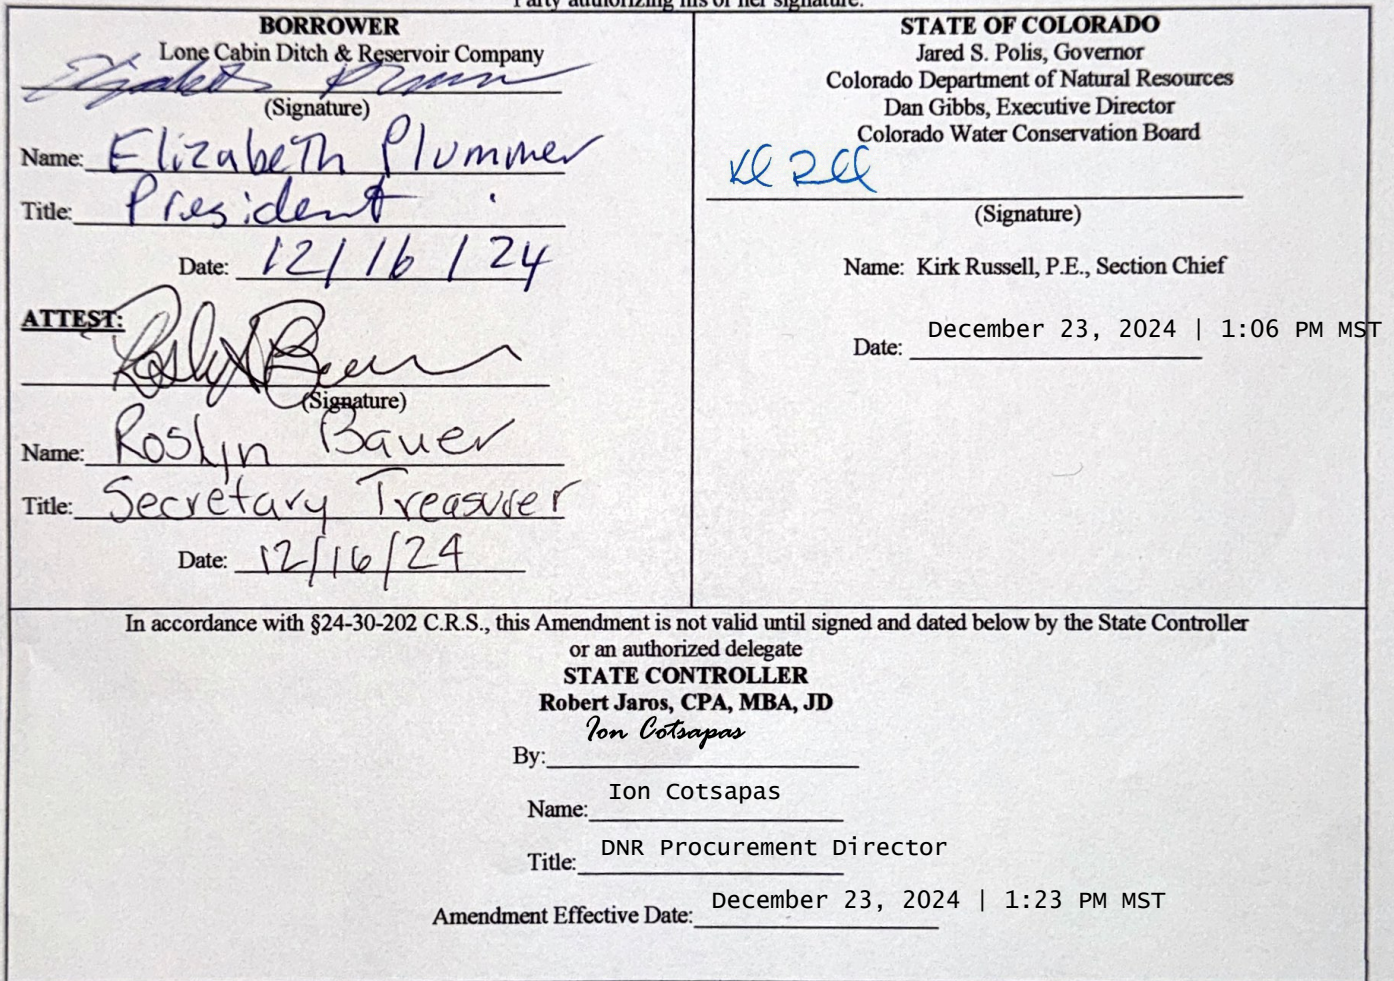 Party authorizing his or her signature.
BORROWER
Lone Cabin Ditch & Reservoir Company
Elizabeth Plummer
(Signature)
Name: Elizabeth Plummer
Title: President
Date: 12/16/24
ATTEST:
Roslyn Bauer
(Signature)
Name: Roslyn Bauer
Title: Secretary Treasurer
Date: 12/16/24
STATE OF COLORADO
Jared S. Polis, Governor
Colorado Department of Natural Resources
Dan Gibbs, Executive Director
Colorado Water Conservation Board
(Signature)
Name: Kirk Russell, P.E., Section Chief
Date: December 23, 2024 | 1:06 PM MST
In accordance with §24-30-202 C.R.S., this Amendment is not valid until signed and dated below by the State Controller
or an authorized delegate
STATE CONTROLLER
Robert Jaros, CPA, MBA, JD
By: Ion Cotsapas
Name: Ion Cotsapas
Title: DNR Procurement Director
Amendment Effective Date: December 23, 2024 | 1:23 PM MST